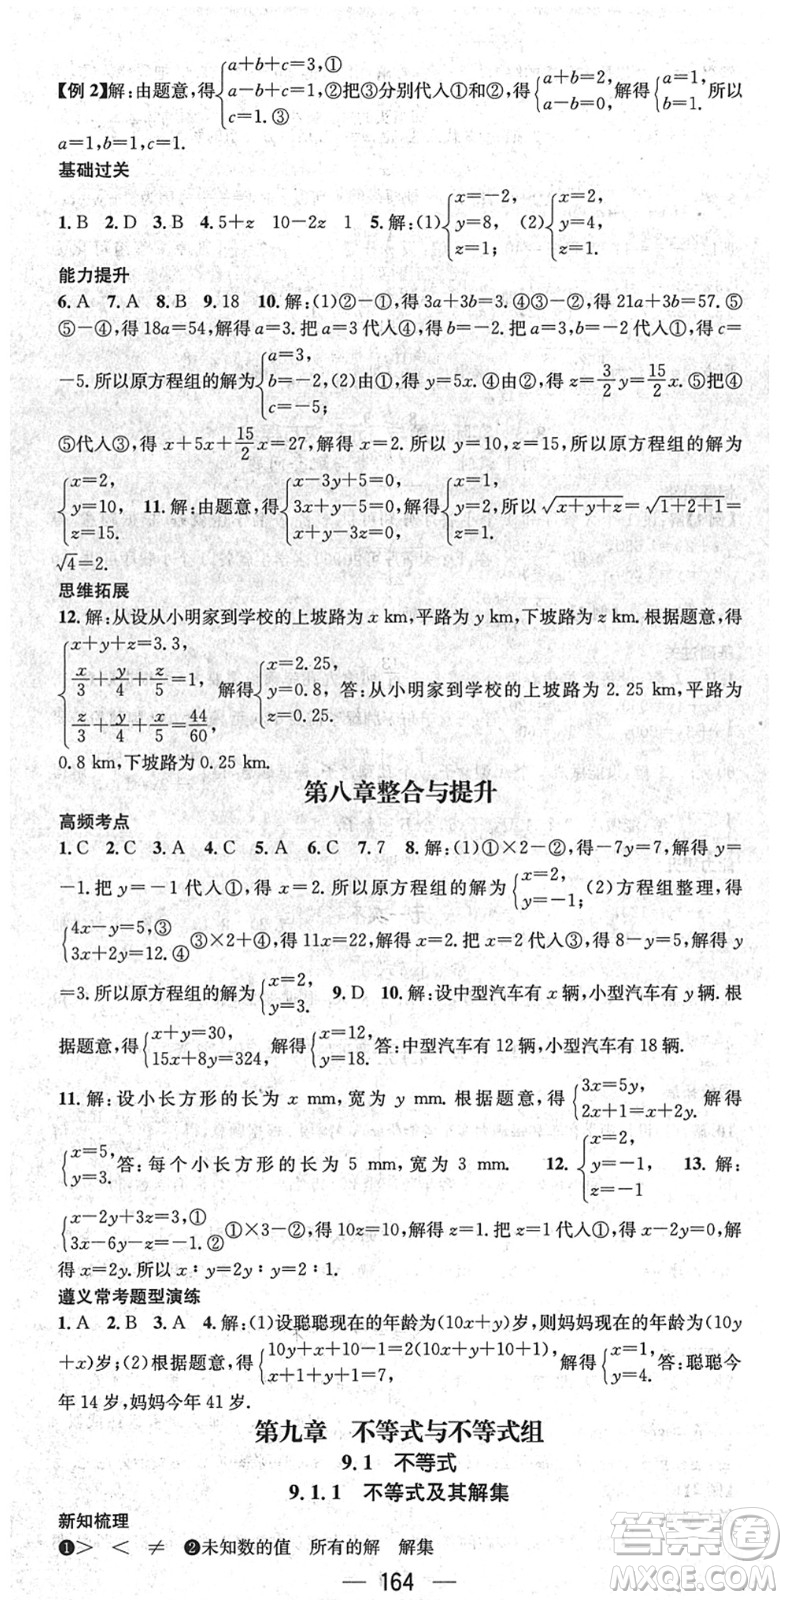 【例2】解:由题意,得{a+b+c=3,① a-b+c=1,② c=1.③ 把③分别代人①和②,得{a+b=2, a-b=0, 解得{a=1, b=1. 所以
a=1,b=1,c=1.
基础过关
1.B 2.D 3.B 4.5+z 10-2z 1 5.解:(1){x=-2, y=8, z=1; (2){x=2, y=4, z=1.
能力提升
6.A 7.A 8.B 9.18 10.解:(1)②-①,得3a+3b=3.④ ③-②,得21a+3b=57.⑤
⑤-④,得18a=54,解得a=3.把a=3代人④,得b=-2.把a=3,b=-2代人①,得c=
-5.所以原方程组的解为{a=3, b=-2, c=-5; (2)由①,得y=5x.④由②,得z=3/2y=15/2x.⑤把④
⑤代人③,得x+5x+15/2x=27,解得x=2.所以y=10,z=15,所以原方程组的解为
{x=2, y=10, z=15. 11.解:由题意,得{x-3y+5=0, 3x+y-5=0, x+y-3z=0, 解得{x=1, y=2, z=1. 所以√(x+y+z)=√(1+2+1)=
√4=2.
思维拓展
12.解:从设从小明家到学校的上坡路为x km,平路为y km,下坡路为z km.根据题意,得
{x+y+z=3.3, x/3+y/4+z/5=1, z/3+y/4+x/5=44/60, 解得{x=2.25, y=0.8, z=0.25. 答:从小明家到学校的上坡路为2.25 km,平路为
0.8 km,下坡路为0.25 km.
第八章整合与提升
高频考点
1.C 2.C 3.A 4.C 5.A 6.C 7.7 8.解:(1)①×2-②,得-7y=7,解得y=
-1.把y=-1代人①,得x=2.所以原方程组的解为{x=2, y=-1; (2)方程组整理,得
{4x-y=5,③ 3x+2y=12.④ ③×2+④,得11x=22,解得x=2.把x=2代人③,得8-y=5,解得y
=3.所以原方程组的解为{x=2, y=3. 9.D 10.解:设中型汽车有x辆,小型汽车有y辆.根
据题意,得{x+y=30, 15x+8y=324, 解得{x=12, y=18. 答:中型汽车有12辆,小型汽车有18辆.
11.解:设小长方形的长为x mm,宽为y mm.根据题意,得{3x=5y, 2x+1=x+2y. 解得
{x=5, y=3. 答:每个小长方形的长为5 mm,宽为3 mm. 12.{x=2, y=-1, z=-1 13.解:
{x-2y+3z=0,① 3x-6y-z=0.② ①×3-②,得10z=10,解得z=1.把z=1代人①,得x-2y=0,解
得x=2y.所以x∶y=2y∶y=2∶1.
遵义常考题型演练
1.A 2.B 3.A 4.解:(1)设聪聪现在的年龄为(10x+y)岁,则妈妈现在的年龄为(10y
+x)岁;(2)根据题意,得{10y+x+10=2(10x+y+10+1), x+1+y+1=7, 解得{x=1, y=4. 答:聪聪今
年14岁,妈妈今年41岁.
第九章 不等式与不等式组
9.1 不等式
9.1.1 不等式及其解集
新知梳理
❶> < ≠ ❷未知数的值 所有的解 解集
— 164 —
答案圈
MXQE.COM